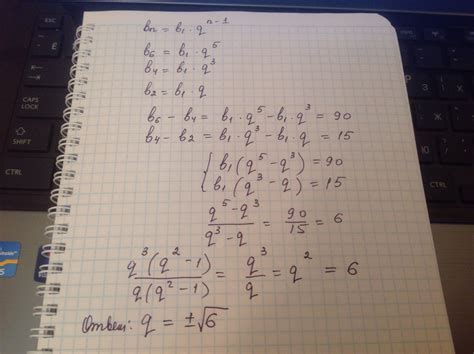 bn = b₁ · q^(n-1)
b₆ = b₁ · q⁵
b₄ = b₁ · q³
b₂ = b₁ · q
b₆ - b₄ = b₁ · q⁵ - b₁ · q³ = 90
b₄ - b₂ = b₁ · q³ - b₁ · q = 15
{ b₁(q⁵ - q³) = 90
b₁(q³ - q) = 15
(q⁵ - q³)/(q³ - q) = 90/15 = 6
q³(q² - 1)/q(q² - 1) = q³/q = q² = 6
Ответ: q = ±√6
CAPS LOCK
SHIFT
CTRL
CTRL